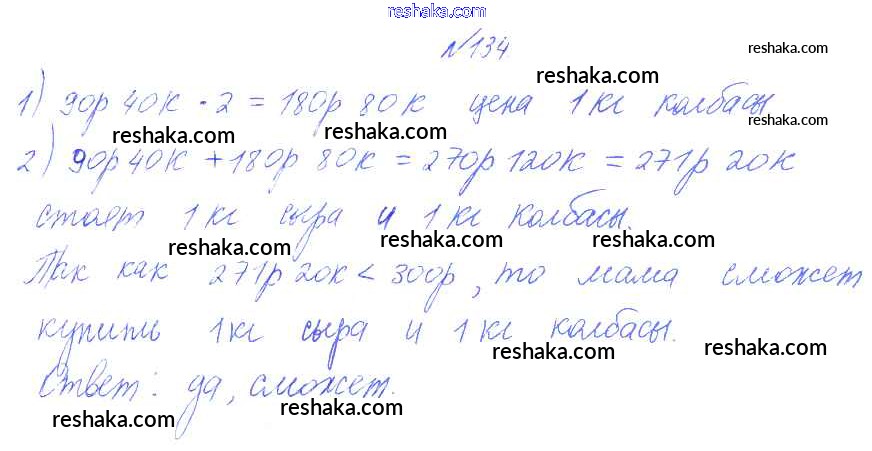 reshaka.com
№134
reshaka.com
reshaka.com
1) 90р 40к · 2 = 180р 80к цена 1 кг колбасы
reshaka.com
reshaka.com reshaka.com
2) 90р 40к + 180р 80к = 270р 120к = 271р 20к
стоет 1 кг сыра и 1 кг колбасы.
reshaka.com reshaka.com reshaka.com
Так как 271р 20к < 300р, то мама сможет
купить 1 кг сыра и 1 кг колбасы.
reshaka.com reshaka.com
Ответ: да, сможет.
reshaka.com reshaka.com